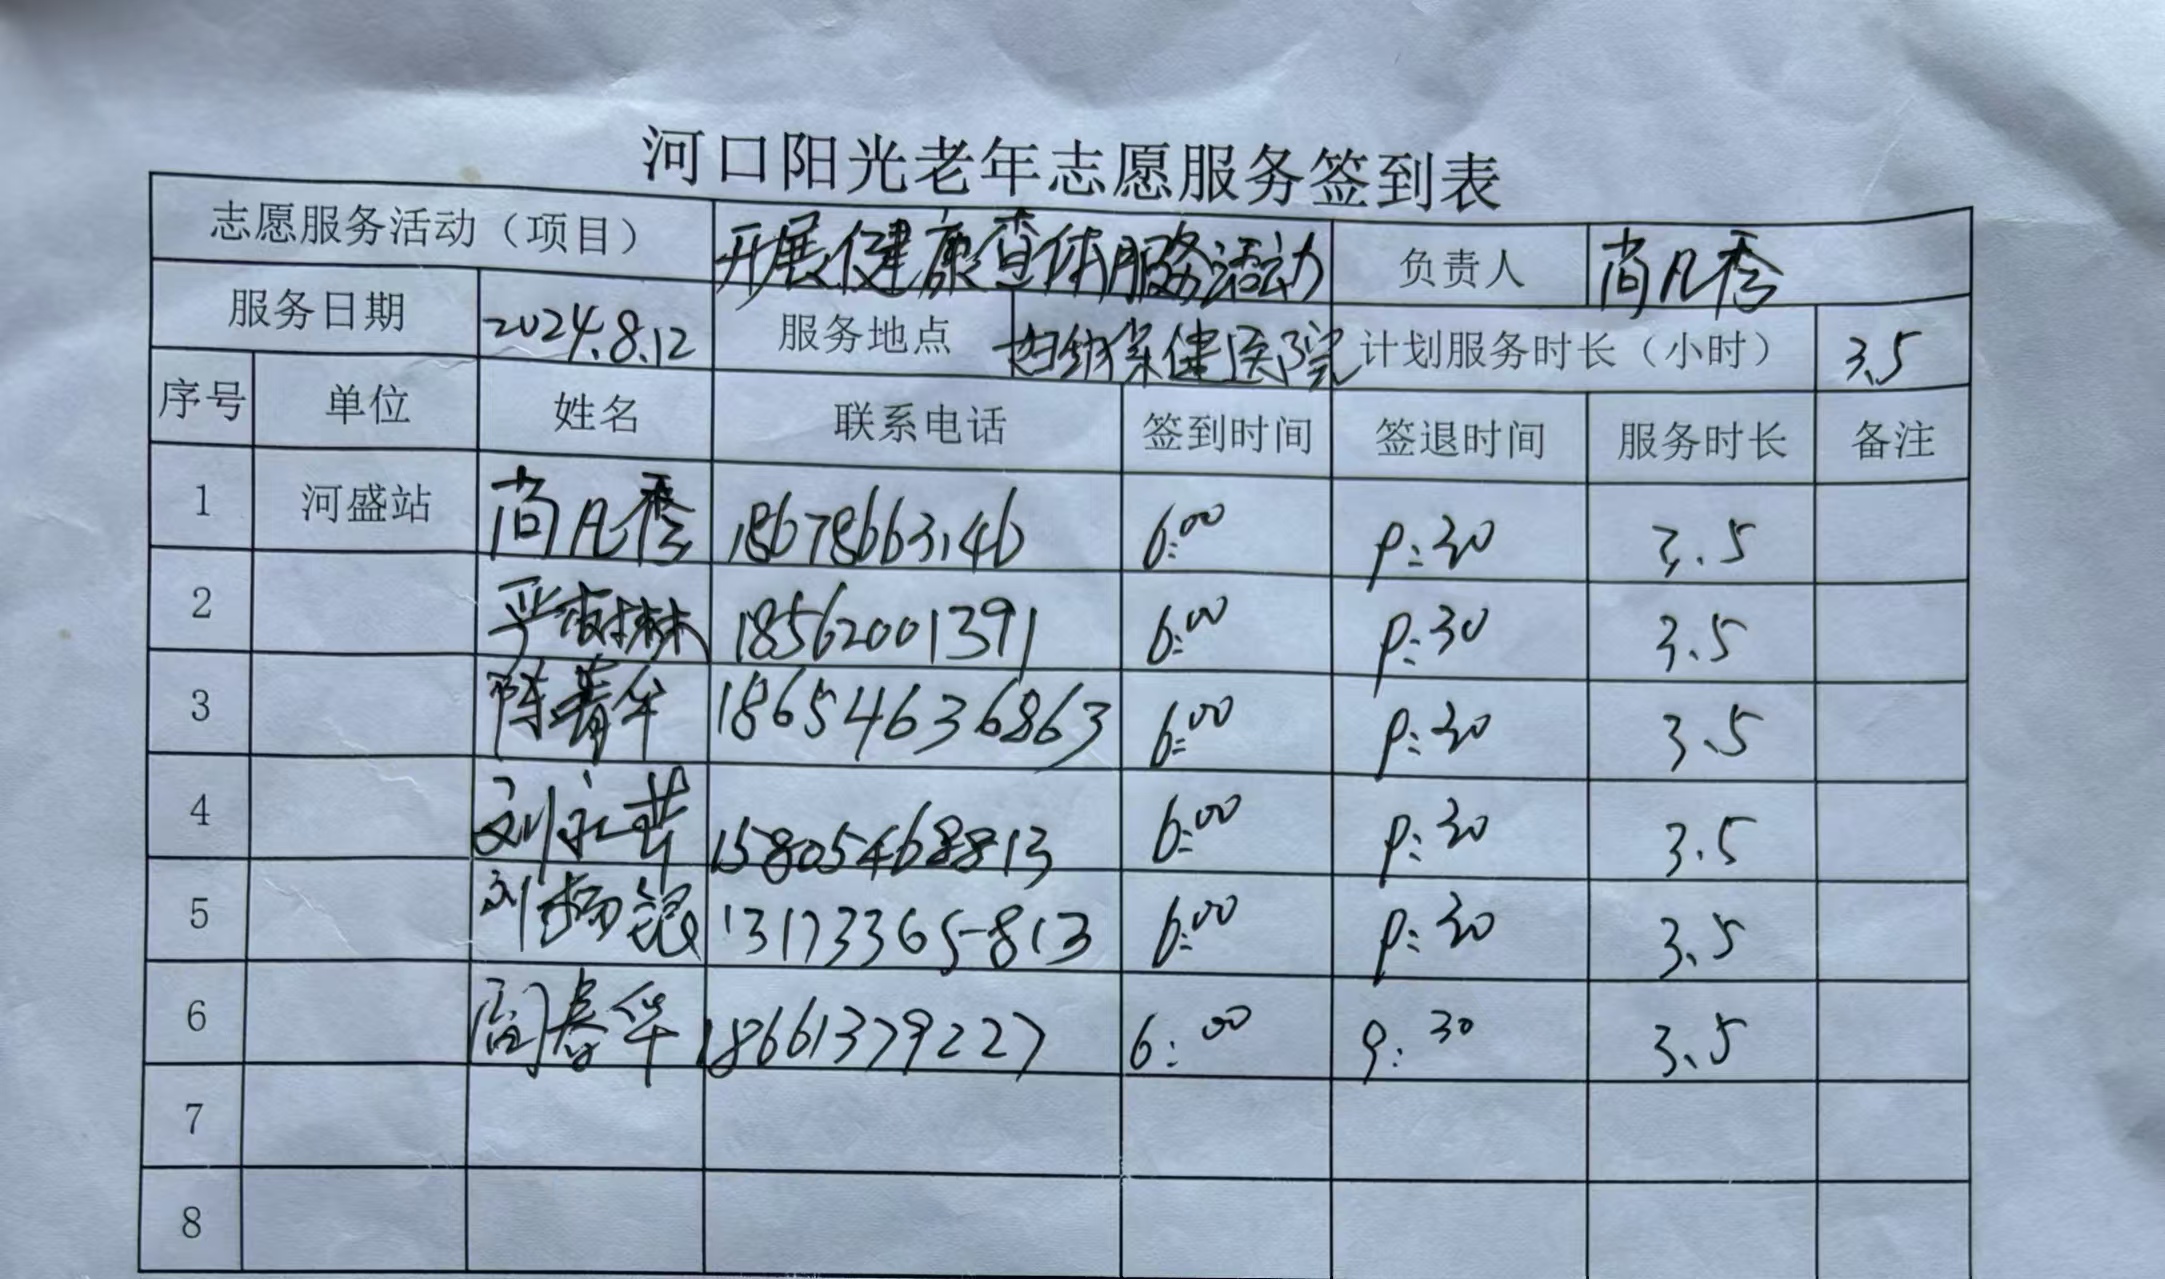 河口阳光老年志愿服务签到表
志愿服务活动（项目） 开展健康查体服务活动 负责人 尚凡秀
服务日期 2024.8.12 服务地点 妇幼保健医院 计划服务时长（小时） 3.5
序号 单位 姓名 联系电话 签到时间 签退时间 服务时长 备注
1 河盛站 尚凡秀 18678663146 6:00 9:30 3.5
2 严树林 18562001391 6:00 9:30 3.5
3 陈青华 18654636863 6:00 9:30 3.5
4 刘 15805468813 6:00 9:30 3.5
5 刘杨银 13173365813 6:00 9:30 3.5
6 阎春华 18661379227 6:00 9:30 3.5
7
8